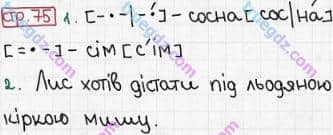 стр. 75 1. [–•–|–•́] – сосна [сос|на́]
[=•–] – сім [с'ім]
2. Лис хотів дістати під льодяною
кіркою мишу.